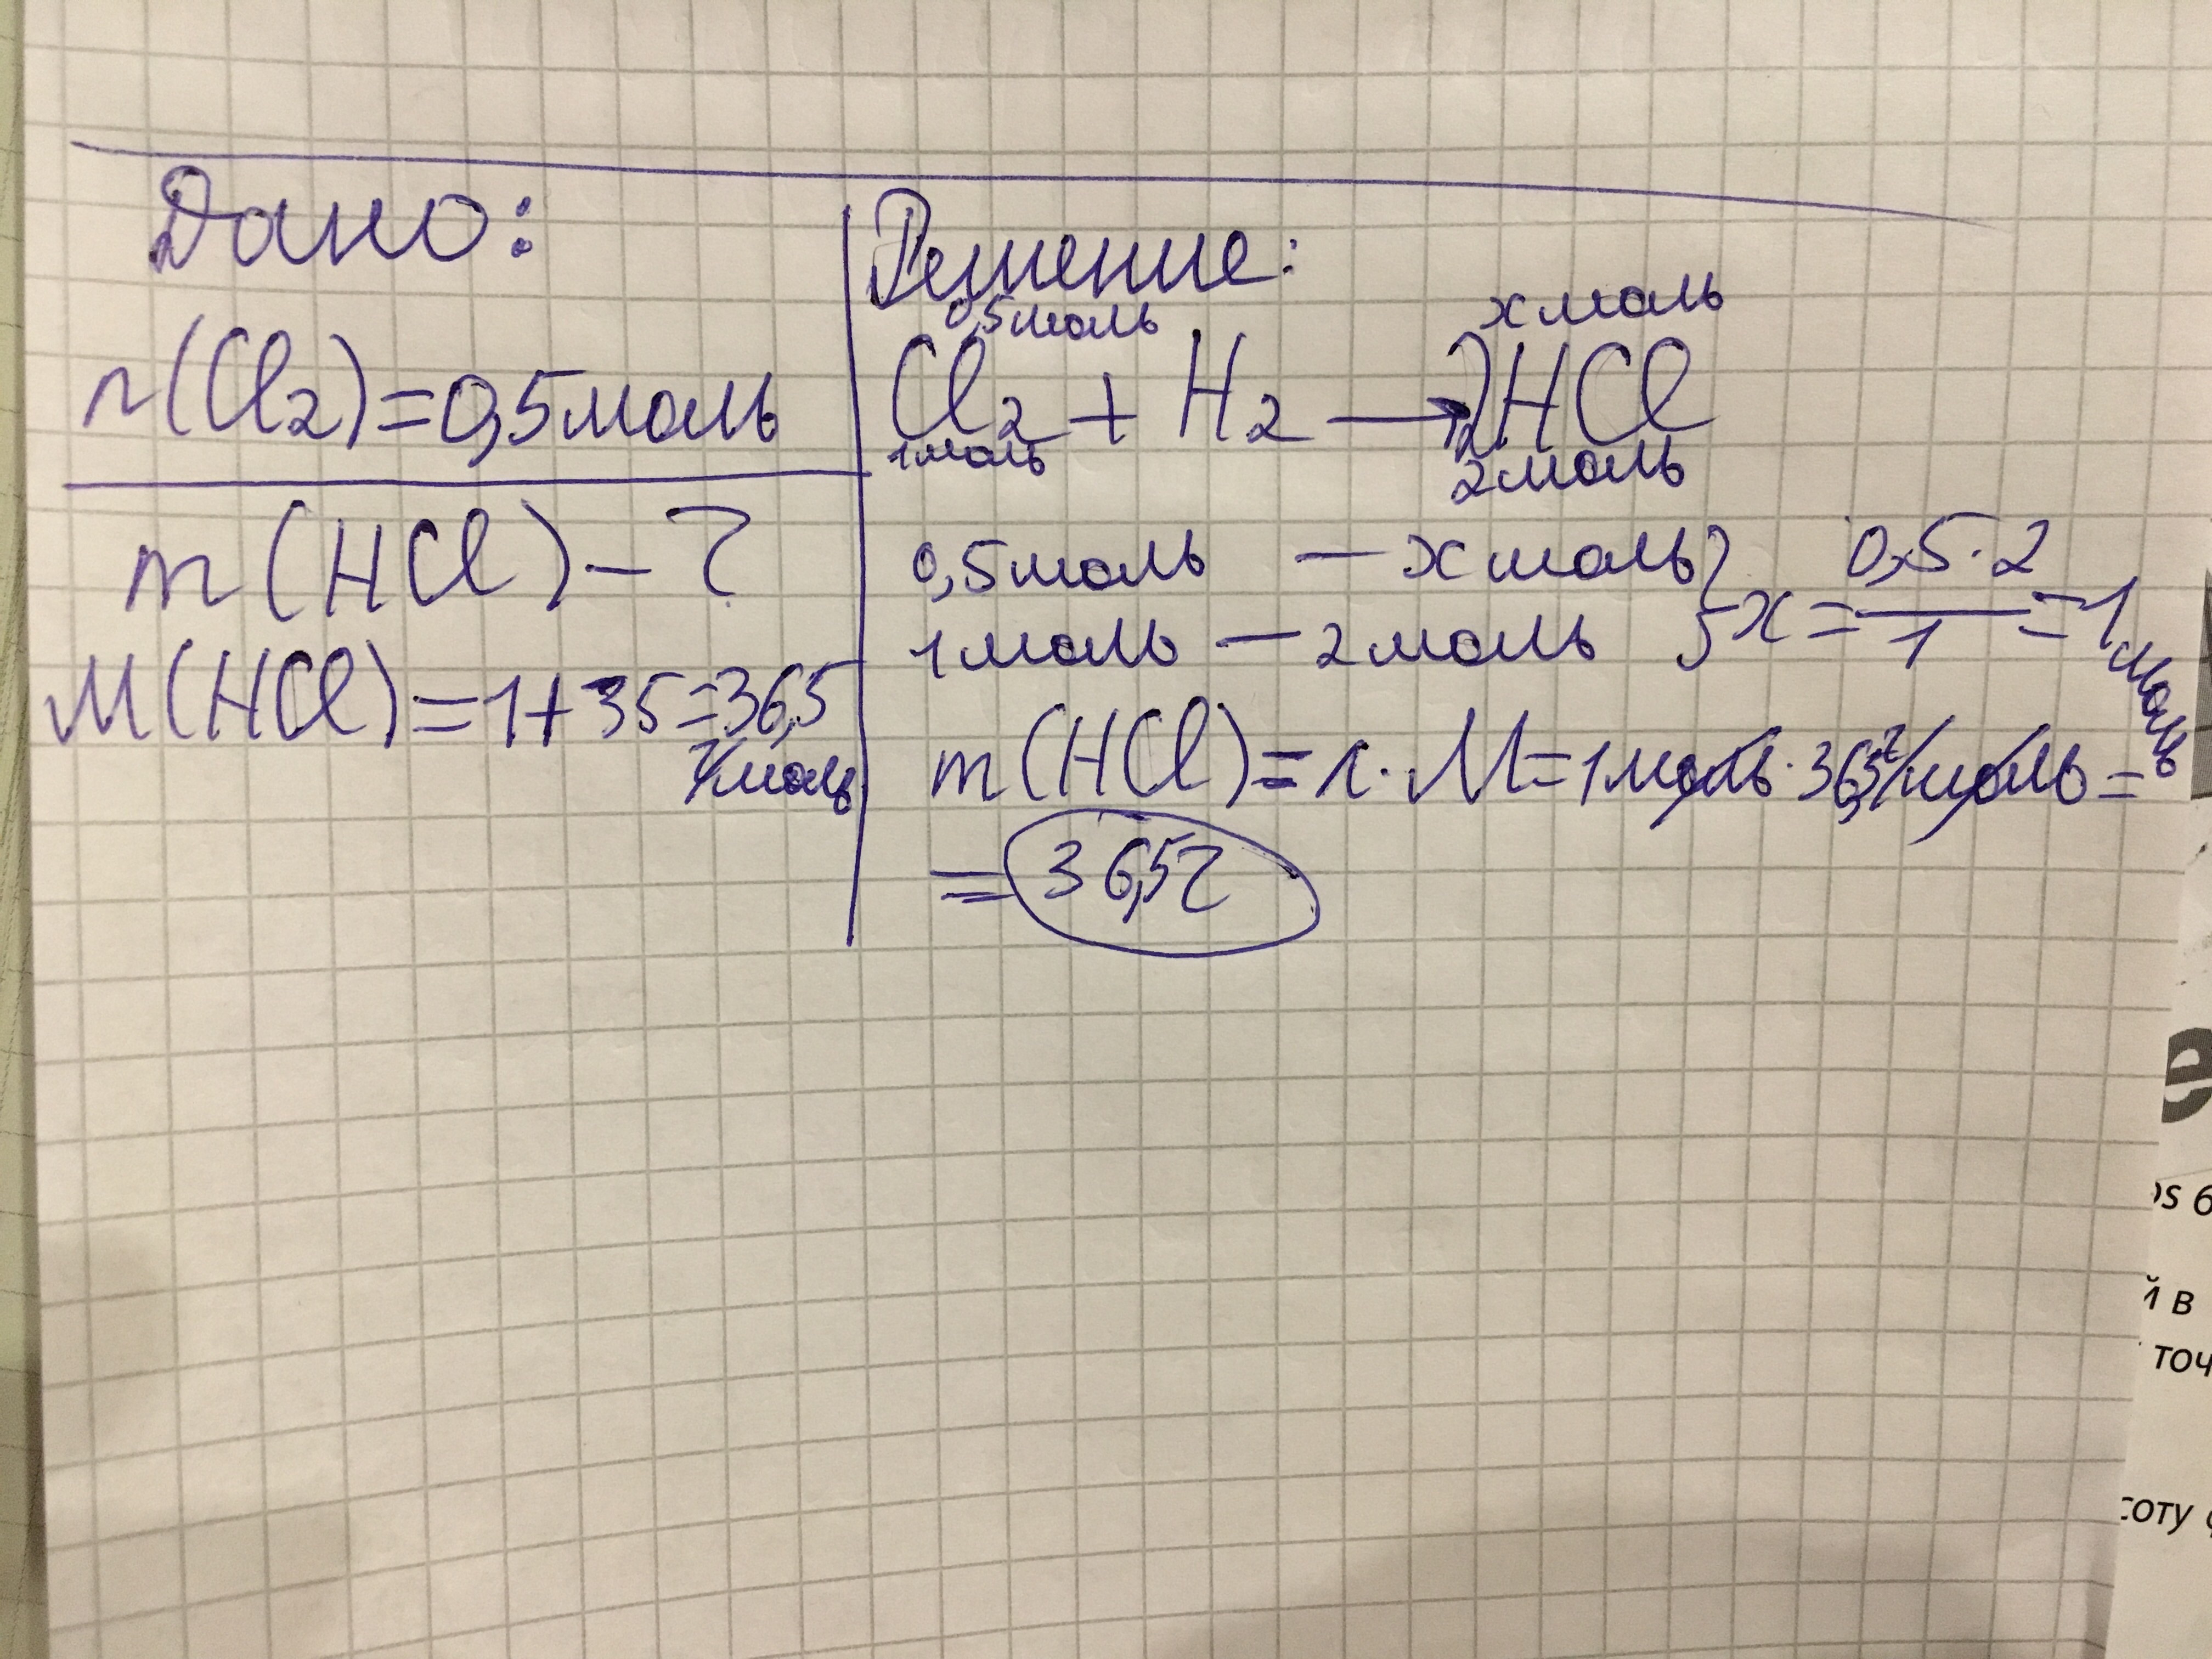 Дано:
n(Cl2)=0,5моль
m(HCl)–?
M(HCl)=1+35=36,5
г/моль
Решение:
0,5моль
x моль
Cl2 + H2 → 2HCl
1моль
2моль
0,5моль – x моль
1моль – 2моль
} x = 0,5·2/1 = 1 моль
m(HCl)=n·M=1моль·36,5г/моль=
=36,5г
е
os 6
й в
точ
соту